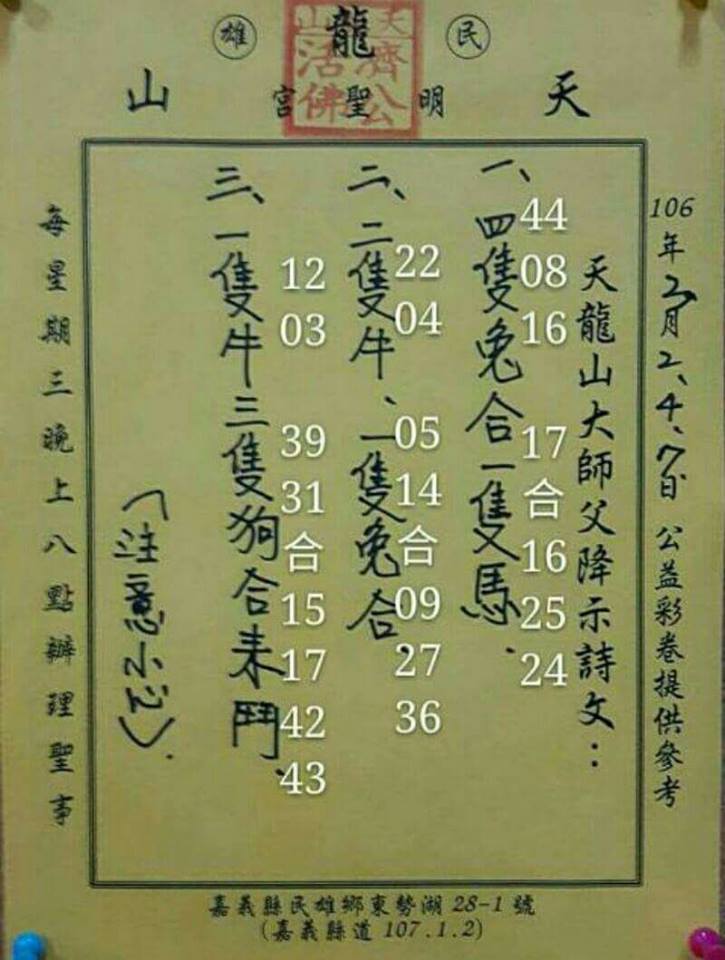 民 龍 雄
天 明聖宮 山
天山
濟公
活佛
106年2月2、4、7日 公益彩卷提供參考
天龍山大師父降示詩文：
44 08 16 17 合 16 25 24
一、四隻兔合一隻馬、
22 04 05 14 合 09 27 36
二、二隻牛、一隻兔合、
12 03 39 31 合 15 17 42 43
三、一隻牛三隻狗合來鬥、
（注意小心）.
每星期三晚上八點辦理聖事
嘉義縣民雄鄉東勢湖 28-1 號
(嘉義縣道 107.1.2)